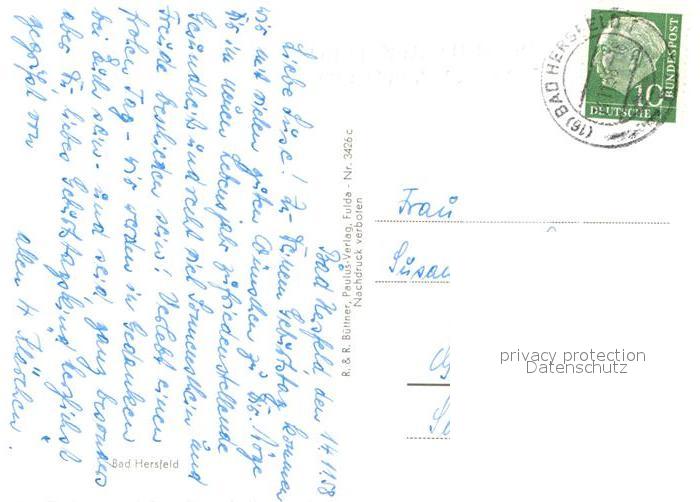 Bad Hersfeld, den 14.11.58
Liebe Suse! Zu Deinem Geburtstag kommen
wir mit vielen guten Wünschen zu Dir. Möge
Dir im neuen Lebensjahr zufriedenstellende
Gesundheit und recht viel Sonnenschein und
Freude beschieden sein! Verlebt einen
frohen Tag - wir werden in Gedanken
bei Euch sein - und seid, ganz besonders
aber Du, liebes Geburtstagskind herzlichst
gegrüßt von
allen 4
Bad Hersfeld
R. & R. Büttner, Paulus-Verlag, Fulda - Nr. 3426 c
Nachdruck verboten
Frau
Susan
(16) BAD HERSFELD 1
10
DEUTSCHE
BUNDESPOST
privacy protection
Datenschutz